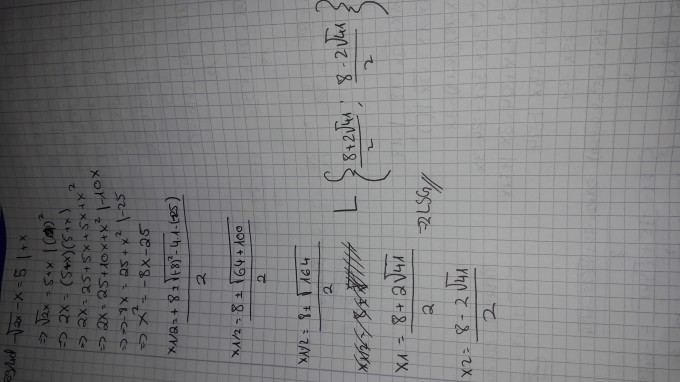 √2x - x = 5 | +x
⇒ √2x = 5+x | ( )²
⇒ 2x = (5+x)(5+x)
⇒ 2x = 25+5x+5x+x²
⇒ 2x = 25+10x+x² | -10x
⇒ -8x = 25+x² | -25
⇒ x² = -8x-25
x1/2 = +8 ± √(-8)²-4·1·(-25) / 2
x1/2 = 8 ± √64+100 / 2
x1/2 = 8 ± √164 / 2
x1 = 8+2√41 / 2
x2 = 8-2√41 / 2
L { 8+2√41 / 2 ; 8-2√41 / 2 }
⇒ 2 LSG //